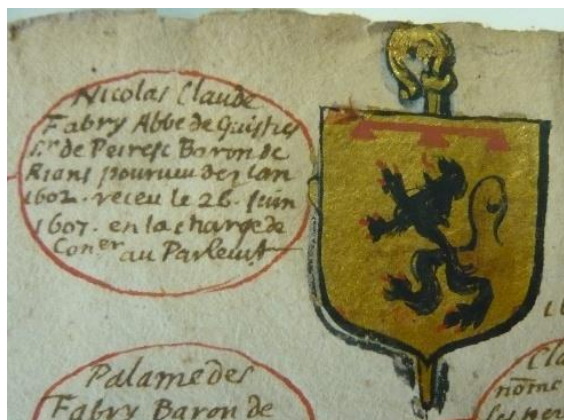 Nicolas Claude
Fabry Abbé de Guistres
Sr de Peiresc Baron de
Rians pourveu dez lan
1602. receu le 26. Juin
1607. en la charge de
Coner au Parlemt
Palamedes
Fabry Baron de
Cla
nome